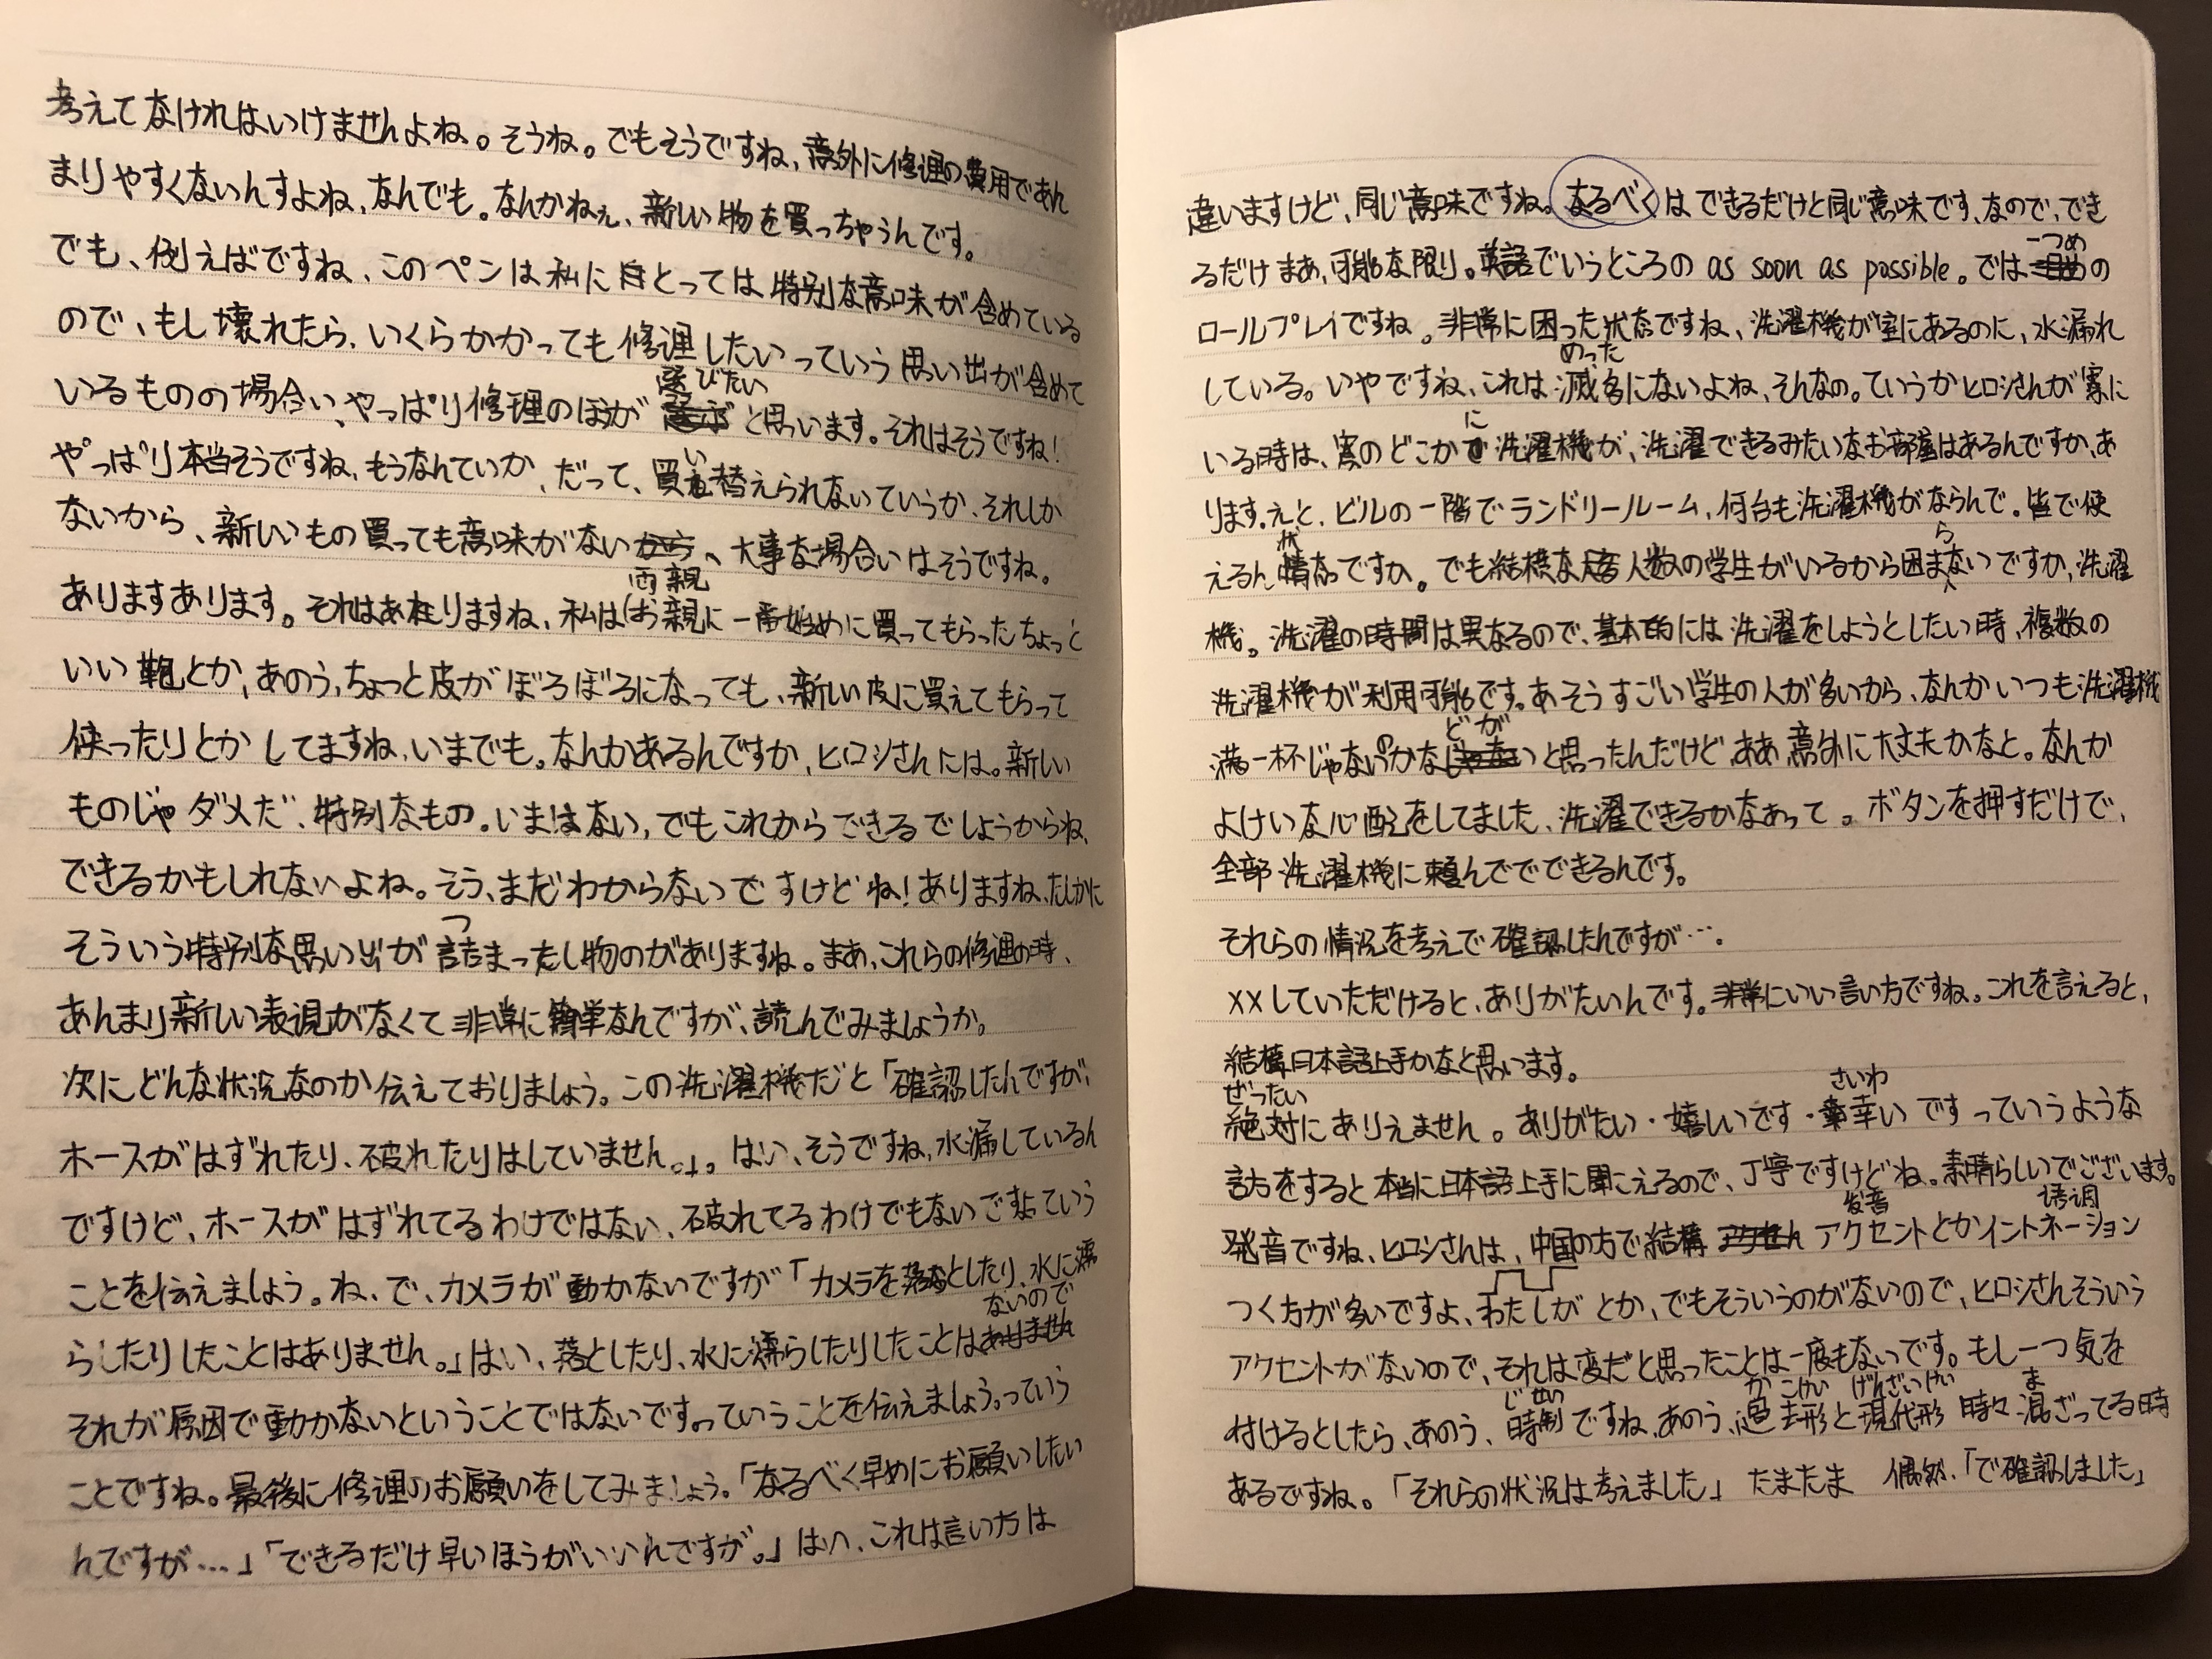 考えてなければいけませんよね。そうね。でもそうですね、意外に修理の費用であん
まりやすくないんすよね、なんでも。なんかねぇ、新しい物を買っちゃうんです。
でも、例えばですね、このペンは私にとっては特別な意味が含めている
ので、もし壊れたら、いくらかかっても修理したいっていう思い出が含めて
選びたい
いるものの場合い、やっぱり修理のほが と思います。それはそうですね!
い
やっぱり本当そうですね、もうなんていか、だって、買替えられないていうか、それしか
ないから、新しいもの買っても意味がないから、大事な場合いはそうですね。
両親
ありますあります。それはありますね、私は(お親に一番始めに買ってもらったちょっと
いい鞄とか、あのう、ちょっと皮がぼろぼろになっても、新しい皮に買えてもらって
使ったりとかしてますね、いまでも。なんかあるんですか、ヒロシさんには。新しい
ものじゃダメだ、特別なもの。いまはない、でもこれからできるでしようからね、
できるかもしれないよね。そう、まだわからないですけどね!ありますね、たしかに
つ
そういう特別な思い出が詰まったし物のがありますね。まあ、これらの修理の時、
あんまり新しい表現がなくて非常に簡単なんですが、読んでみましょうか。
次にどんな状況なのか伝えておりましょう。この洗濯機だと「確認したんですが、
ホースがはずれたり、破れたりはしていません。」。はい、そうですね、水漏しているん
ですけど、ホースがはずれてるわけではない、破れてるわけでもないですよっていう
ことを伝えましょう。ね、で、カメラが動かないですが「カメラを落としたり、水に濡
ないので
らしたりしたことはありません。」はい、落としたり、水に濡らしたりしたことはありません
それが原因で動かないということではないです。っていうことを伝えましょう。っていう
ことですね。最後に修理のお願いをしてみましょう。「なるべく早めにお願いしたい
んですが…」「できるだけ早いほうがいいんですが。」はい、これは言い方は
違いますけど、同じ意味ですね。なるべくはできるだけと同じ意味です、なので、でき
一つめ
るだけまあ、可能な限り。英語でいうところの as soon as possible。では の
ロールプレイですね。非常に困った状態ですね、洗濯機が室にあるのに、水漏れ
めった
している。いやですね、これは滅多にないよね、そんなの。ていうかヒロシさんが家に
に
いる時は、家のどこかで洗濯機が、洗濯できるみたいなお部屋はあるんですか、あ
ります。えと、ビルの一階でランドリールーム、何台も洗濯機がならんで。皆で使
状 ら
えるん情态ですか。でも結構な 人数の学生がいるから困まないですか、洗濯
機。洗濯の時間は異なるので、基本的には洗濯をしようとしたい時、複数の
洗濯機が利用可能です。あそうすごい学生の人が多いから、なんかいつも洗濯機
の どが
満一杯じゃないかなじゃないと思ったんだけど、ああ意外に大丈夫かなと。なんか
よけいな心配をしてました、洗濯できるかなあって。ボタンを押すだけで、
全部洗濯機に頼んででできるんです。
それらの情況を考えで確認したんですが…。
××していただけると、ありがたいんです。非常にいい言い方ですね。これを言えると、
結構日本語上手かなと思います。
ぜったい さいわ
絶対にありえません。ありがたい・嬉しいです・幸いですっていうような
言方をすると本当に日本語上手に聞こえるので、丁寧ですけどね。素晴らしいでございます。
发音 语调
発音ですね、ヒロシさんは、中国の方で結構 アクセントとかイントネーション
つく方が多いですよ、わたしがとか、でもそういうのがないので、ヒロシさんそういう
アクセントがないので、それは変だと思ったことは一度もないです。もし一つ気を
じせい かこけい げんざいけい ま
付けるとしたら、あのう、時制ですね、あのう、過去形と現代形 時々混ざってる時
あるですね。「それらの状況は考えました」たまたま 偶然、「で確認しました」